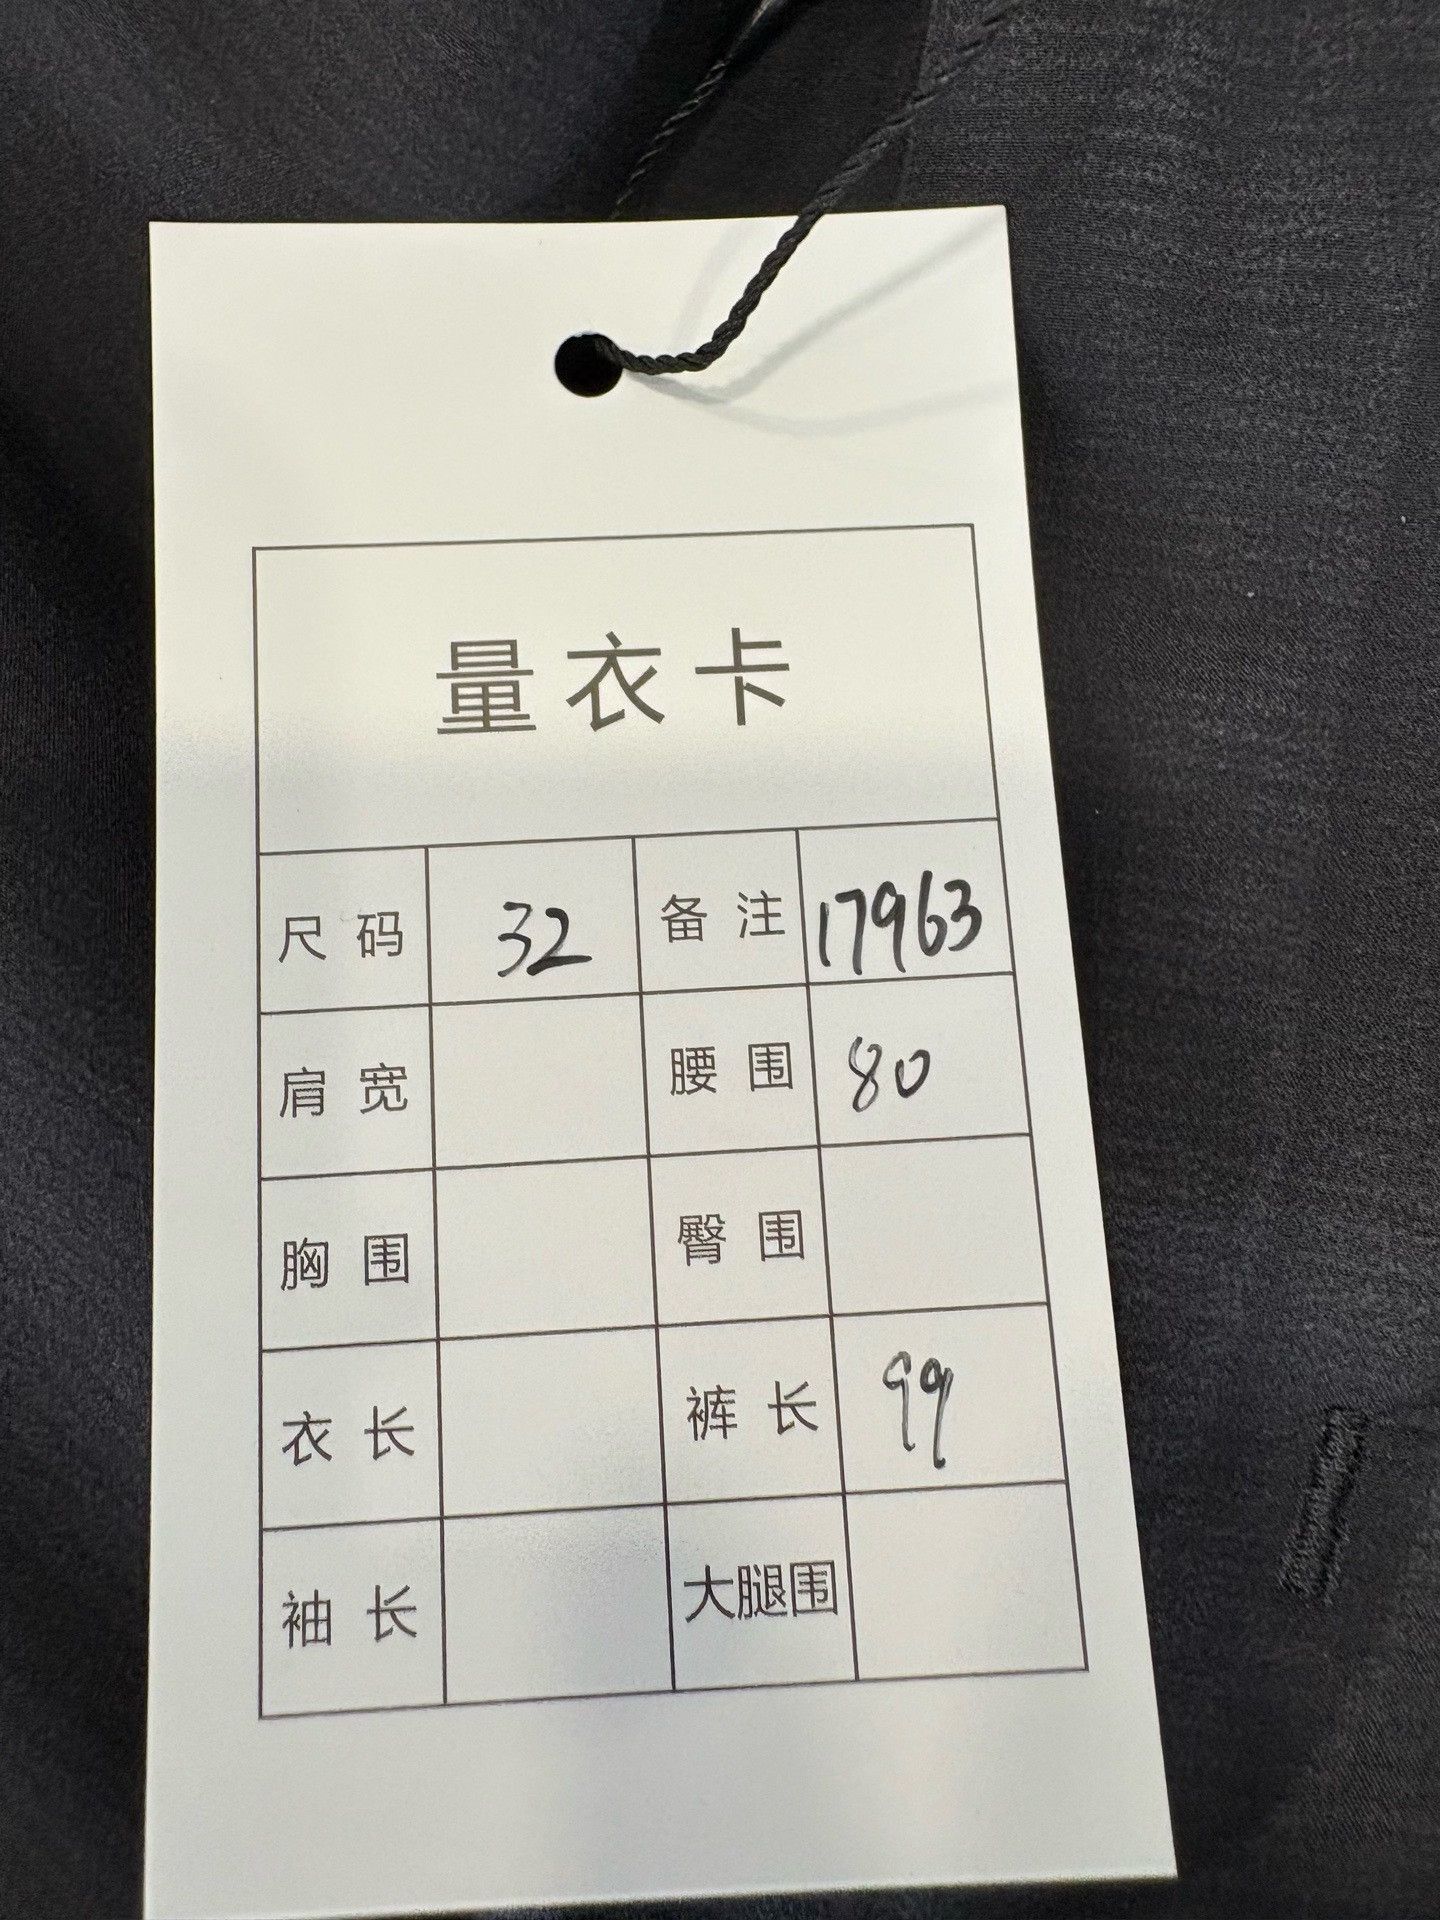 量衣卡
尺码 32 备注 17963
肩宽 腰围 80
胸围 臀围
衣长 裤长 99
袖长 大腿围